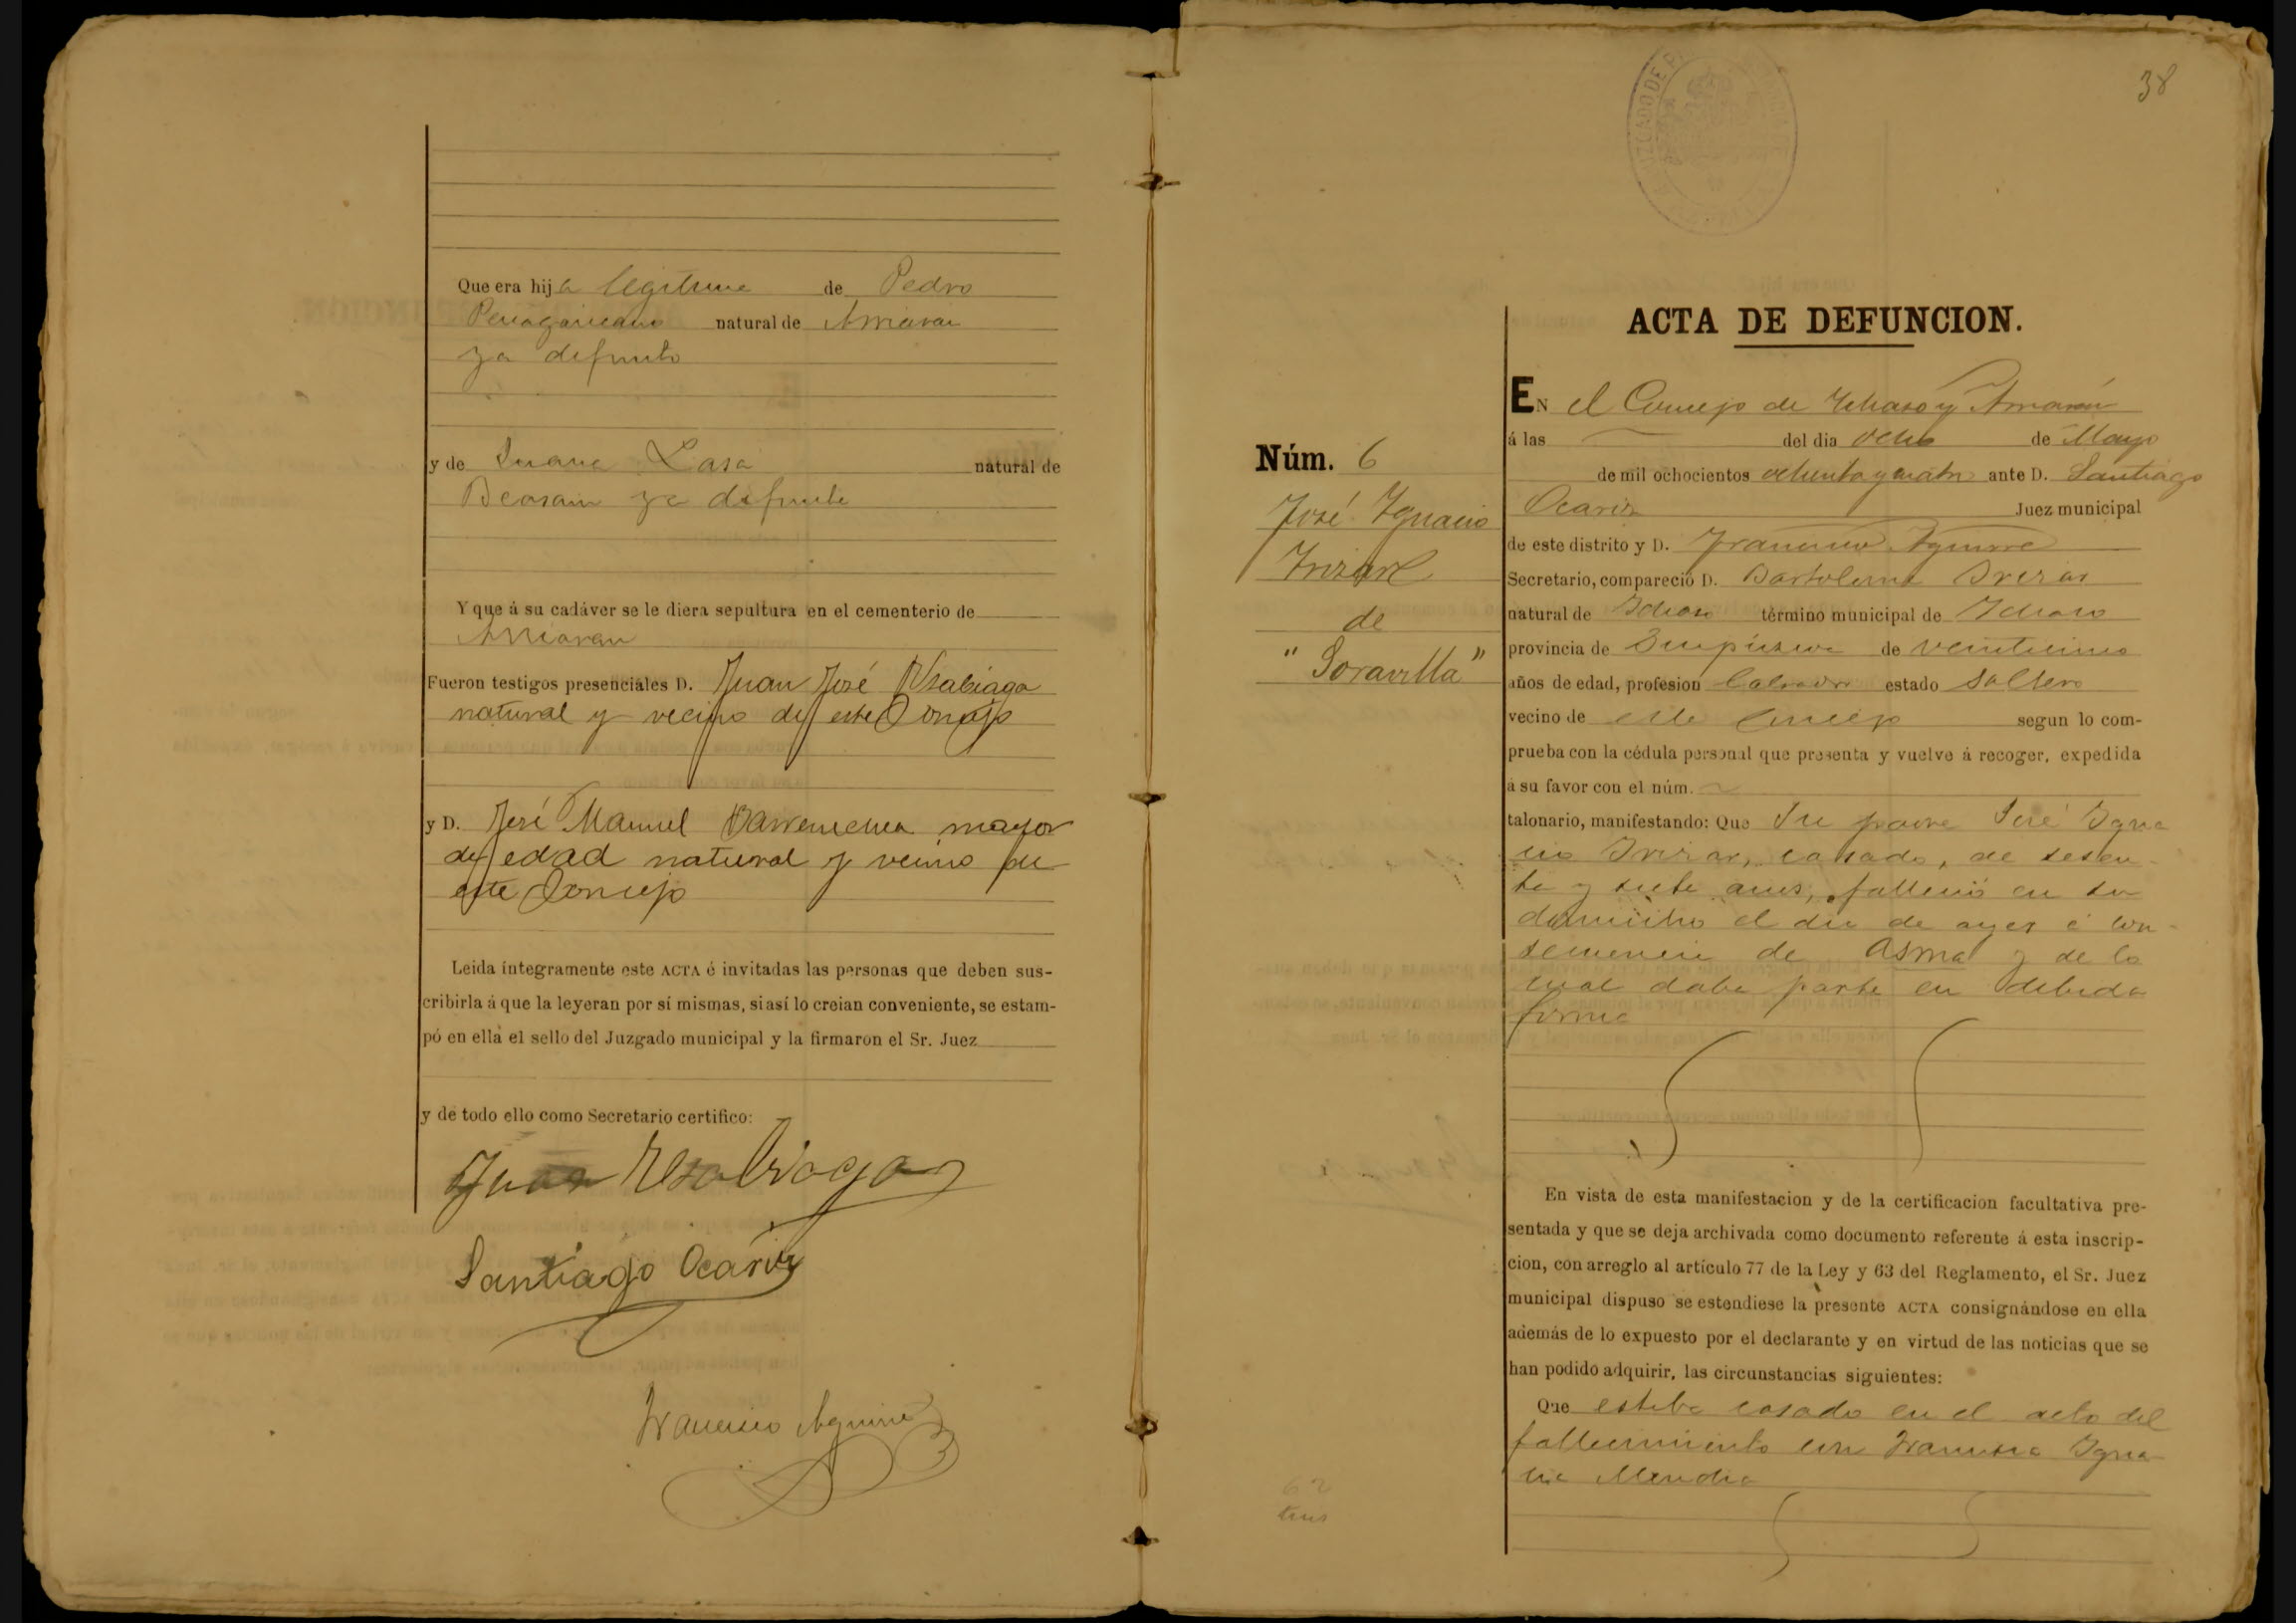 Que era hija legitima de Pedro
Penagaricano natural de Arriaran
ya difunto
y de Juana Lasa natural de
Beasain ya difunta
Y que á su cadáver se le diera sepultura en el cementerio de
Arriaran
Fueron testigos presenciales D. Juan José Usabiaga
natural y vecino de este Concejo
y D. José Manuel Barrenechea mayor
de edad natural y vecino de
este Concejo
Leida íntegramente este ACTA é invitadas las personas que deben sus-
cribirla á que la leyeran por sí mismas, si así lo creian conveniente, se estam-
pó en ella el sello del Juzgado municipal y la firmaron el Sr. Juez
y de todo ello como Secretario certifico:
Juan Usabiaga
Santiago Ocáriz
Francisco Aguirre
38
JUZGADO DE
ACTA DE DEFUNCION.
Núm. 6
José Ygnacio
Yrizar
de
"Soravilla"
EN el Concejo de Ychaso y Arriarán
á las del dia ocho de Mayo
de mil ochocientos ochenta y cuatro ante D. Santiago
Ocariz Juez municipal
de este distrito y D. Francisco Aguirre
Secretario, compareció D. Bartolomé Yrizar
natural de Ychaso término municipal de Ychaso
provincia de Guipúzcoa de veinticinco
años de edad, profesion labrador estado soltero
vecino de este Concejo segun lo com-
prueba con la cédula personal que presenta y vuelve á recoger, expedida
á su favor con el núm.
talonario, manifestando: Que su padre José Ygna
cio Yrizar, casado, de sesen-
ta y siete anos, falleció en su
domicilio el dia de ayer á con-
secuencia de asma y de lo
cual daba parte en debida
forma
En vista de esta manifestacion y de la certificacion facultativa pre-
sentada y que se deja archivada como documento referente á esta inscrip-
cion, con arreglo al artículo 77 de la Ley y 63 del Reglamento, el Sr. Juez
municipal dispuso se estendiese la presente ACTA consignándose en ella
además de lo expuesto por el declarante y en virtud de las noticias que se
han podido adquirir, las circunstancias siguientes:
Que estaba casado en el acto del
fallecimiento con Francisca Ygna
cia Mendia
62